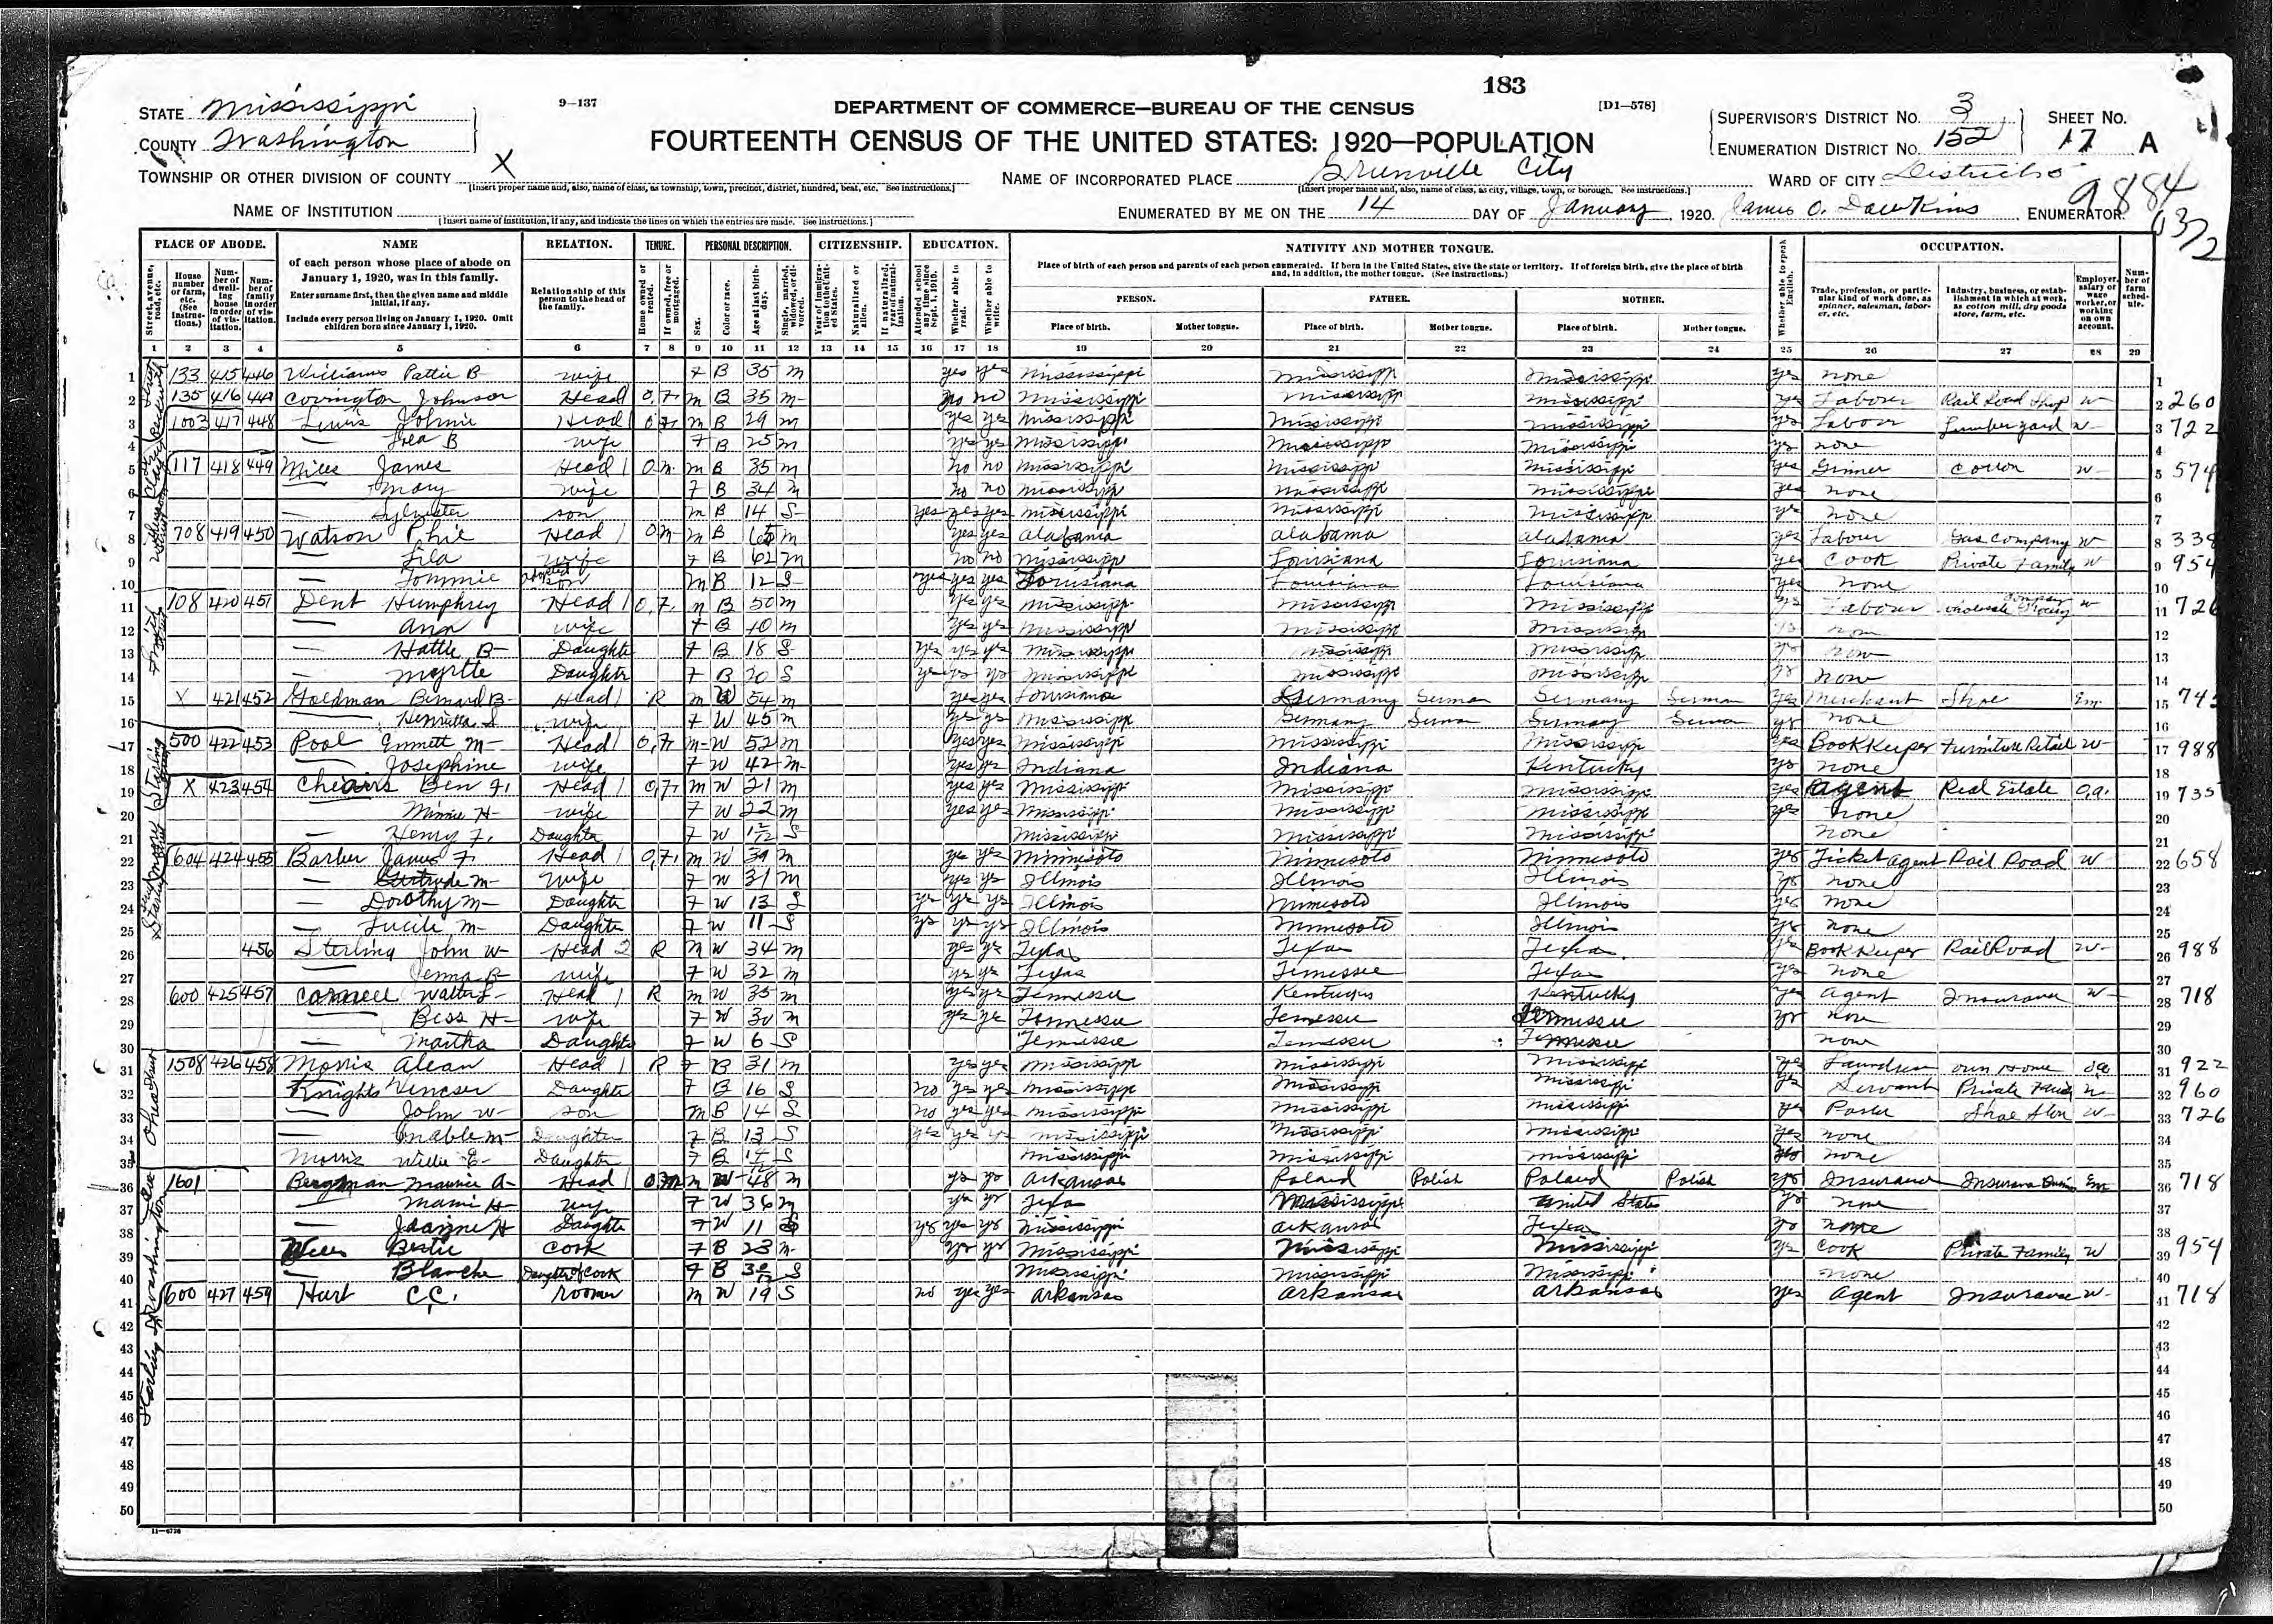 183
STATE Mississippi
9-137
DEPARTMENT OF COMMERCE—BUREAU OF THE CENSUS
[D1-578]
SUPERVISOR'S DISTRICT No. 3
SHEET No.
COUNTY Washington
FOURTEENTH CENSUS OF THE UNITED STATES: 1920—POPULATION
ENUMERATION DISTRICT No. 152
17 A
TOWNSHIP OR OTHER DIVISION OF COUNTY X
[Insert proper name and, also, name of class, as township, town, precinct, district, hundred, beat, etc. See instructions.]
NAME OF INCORPORATED PLACE Greenville City
[Insert proper name and, also, name of class, as city, village, town, or borough. See instructions.]
WARD OF CITY
9884
NAME OF INSTITUTION
[Insert name of institution, if any, and indicate the lines on which the entries are made. See instructions.]
ENUMERATED BY ME ON THE 14 DAY OF January, 1920. James O. Dawkins ENUMERATOR.
PLACE OF ABODE. NAME RELATION. TENURE. PERSONAL DESCRIPTION. CITIZENSHIP. EDUCATION. NATIVITY AND MOTHER TONGUE. OCCUPATION.
of each person whose place of abode on January 1, 1920, was in this family.
Enter surname first, then the given name and middle initial, if any.
Include every person living on January 1, 1920. Omit children born since January 1, 1920.
Relationship of this person to the head of the family.
Place of birth of each person and parents of each person enumerated. If born in the United States, give the state or territory. If of foreign birth, give the place of birth and, in addition, the mother tongue. (See instructions.)
PERSON. FATHER. MOTHER.
Place of birth. Mother tongue. Place of birth. Mother tongue. Place of birth. Mother tongue.
Trade, profession, or particular kind of work done, as spinner, salesman, laborer, etc.
Industry, business, or establishment in which at work, as cotton mill, dry goods store, farm, etc.
Employer, salary or wage worker, or working on own account.
Number of farm schedule.
1 2 3 4 5 6 7 8 9 10 11 12 13 14 15 16 17 18 19 20 21 22 23 24 25 26 27 28 29
1 133 415 446 Williams Pattie B wife F B 35 m yes yes Mississippi Mississippi Mississippi yes none
2 135 416 447 Covington Johnson Head O F m B 35 m no no Mississippi Mississippi Mississippi yes Labour Rail Road Shop w 260
3 1003 417 448 Lewis Johnie Head O F m B 29 m yes yes Mississippi Mississippi Mississippi yes Labour Lumber yard w 722
4 B wife F B 25 m yes yes Mississippi Mississippi Mississippi yes none
5 117 418 449 James Head 1 O m m B 35 m no no Mississippi Mississippi Mississippi yes Ginner Cotton w 574
6 Mary wife F B 34 m no no Mississippi Mississippi Mississippi yes none
7 Sylvester son m B 14 S yes yes yes Mississippi Mississippi Mississippi yes none
8 708 419 450 Watson Phil Head 1 O m m B 65 m yes yes Alabama Alabama Alabama yes Labour Gas Company w 338
9 Lila wife F B 62 m no no Mississippi Louisiana Louisiana yes Cook Private Family w 954
10 Tommie adopted son m B 12 S yes yes yes Louisiana Louisiana Louisiana yes none
11 108 420 451 Dent Humphrey Head 1 O F m B 50 m yes yes Mississippi Mississippi Mississippi yes Labour wholesale Grocery Company w 726
12 Ann wife F B 40 m yes yes Mississippi Mississippi Mississippi yes none
13 Hattie B Daughter F B 18 S yes yes yes Mississippi Mississippi Mississippi yes none
14 Myrtle Daughter F B 20 S yes yes yes Mississippi Mississippi Mississippi yes none
15 X 421 452 Goldman Bernard B Head 1 R m W 54 m yes yes Louisiana Germany German Germany German yes Merchant Shoe Em 743
16 Henrietta S wife F W 45 m yes yes Mississippi Germany German Germany German yes none
17 500 422 453 Pool Emmett M Head 1 O F m W 52 m yes yes Mississippi Mississippi Mississippi yes Book Keeper Furniture Retail w 988
18 Josephine wife F W 42 m yes yes Indiana Indiana Kentucky yes none
19 X 423 454 Cheairs Ben F. Head 1 O F m W 21 m yes yes Mississippi Mississippi Mississippi yes Agent Real Estate O.a. 735
20 Minnie H wife F W 22 m yes yes Mississippi Mississippi Mississippi yes none
21 Henry F. Daughter F W S Mississippi Mississippi Mississippi none
22 604 424 455 Barber James F. Head 1 O F m W 39 m yes yes Minnesota Minnesota Minnesota yes Ticket agent Rail Road w 658
23 Gertrude M wife F W 31 m yes yes Illinois Illinois Illinois yes none
24 Dorothy M Daughter F W 13 S yes yes yes Illinois Minnesota Illinois yes none
25 Lucile M Daughter F W 11 S yes yes yes Illinois Minnesota Illinois yes none
26 456 Sterling John W Head 2 R m W 34 m yes yes Texas Texas Texas yes Book Keeper Rail Road w 988
27 B wife F W 32 m yes yes Texas Tennessee Texas yes none
28 600 425 457 Walter L Head 1 R m W 35 m yes yes Tennessee Kentucky Kentucky yes Agent Insurance w 718
29 Bess H wife F W 30 m yes yes Tennessee Tennessee Tennessee yes none
30 Martha Daughter F W 6 S Tennessee Tennessee Tennessee none
31 1508 426 458 Morris Alean Head 1 R F B 31 m yes yes Mississippi Mississippi Mississippi yes Laundress own Home Oa 922
32 Knights Daughter F B 16 S no yes yes Mississippi Mississippi Mississippi yes Servant Private Family w 960
33 John W son m B 14 S no yes yes Mississippi Mississippi Mississippi yes Porter Shoe Store w 726
34 Mable M Daughter F B 13 S yes yes yes Mississippi Mississippi Mississippi yes none
35 Morris Willie E Daughter F B S Mississippi Mississippi Mississippi none
36 1601 Bergman Maurice A Head 1 O m m W 48 m yes yes Arkansas Poland Polish Poland Polish yes Insurance Insurance Em 718
37 Mami H wife F W 36 m yes yes Texas Mississippi United States yes none
38 Jeanne H Daughter F W 11 S yes yes yes Mississippi Arkansas Texas yes none
39 Bestie Cook F B 23 m yes yes Mississippi Mississippi Mississippi yes Cook Private Family w 954
40 Blanche Daughter of Cook F B S Mississippi Mississippi Mississippi none
41 600 427 459 Hart C.C. roomer m W 19 S no yes yes Arkansas Arkansas Arkansas yes Agent Insurance w 718
42
43
44
45
46
47
48
49
50